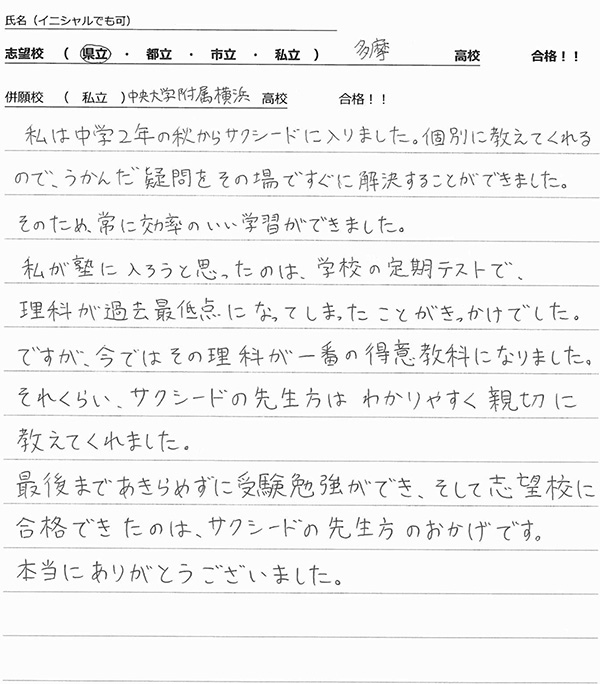 氏名（イニシャルでも可）
志望校 （ 県立 ・ 都立 ・ 市立 ・ 私立 ） 多摩 高校 合格！！
併願校 （ 私立 ）中央大学附属横浜 高校 合格！！
私は中学2年の秋からサクシードに入りました。個別に教えてくれる
ので、うかんだ疑問をその場ですぐに解決することができました。
そのため、常に効率のいい学習ができました。
私が塾に入ろうと思ったのは、学校の定期テストで、
理科が過去最低点になってしまったことがきっかけでした。
ですが、今ではその理科が一番の得意教科になりました。
それくらい、サクシードの先生方はわかりやすく親切に
教えてくれました。
最後まであきらめずに受験勉強ができ、そして志望校に
合格できたのは、サクシードの先生方のおかげです。
本当にありがとうございました。